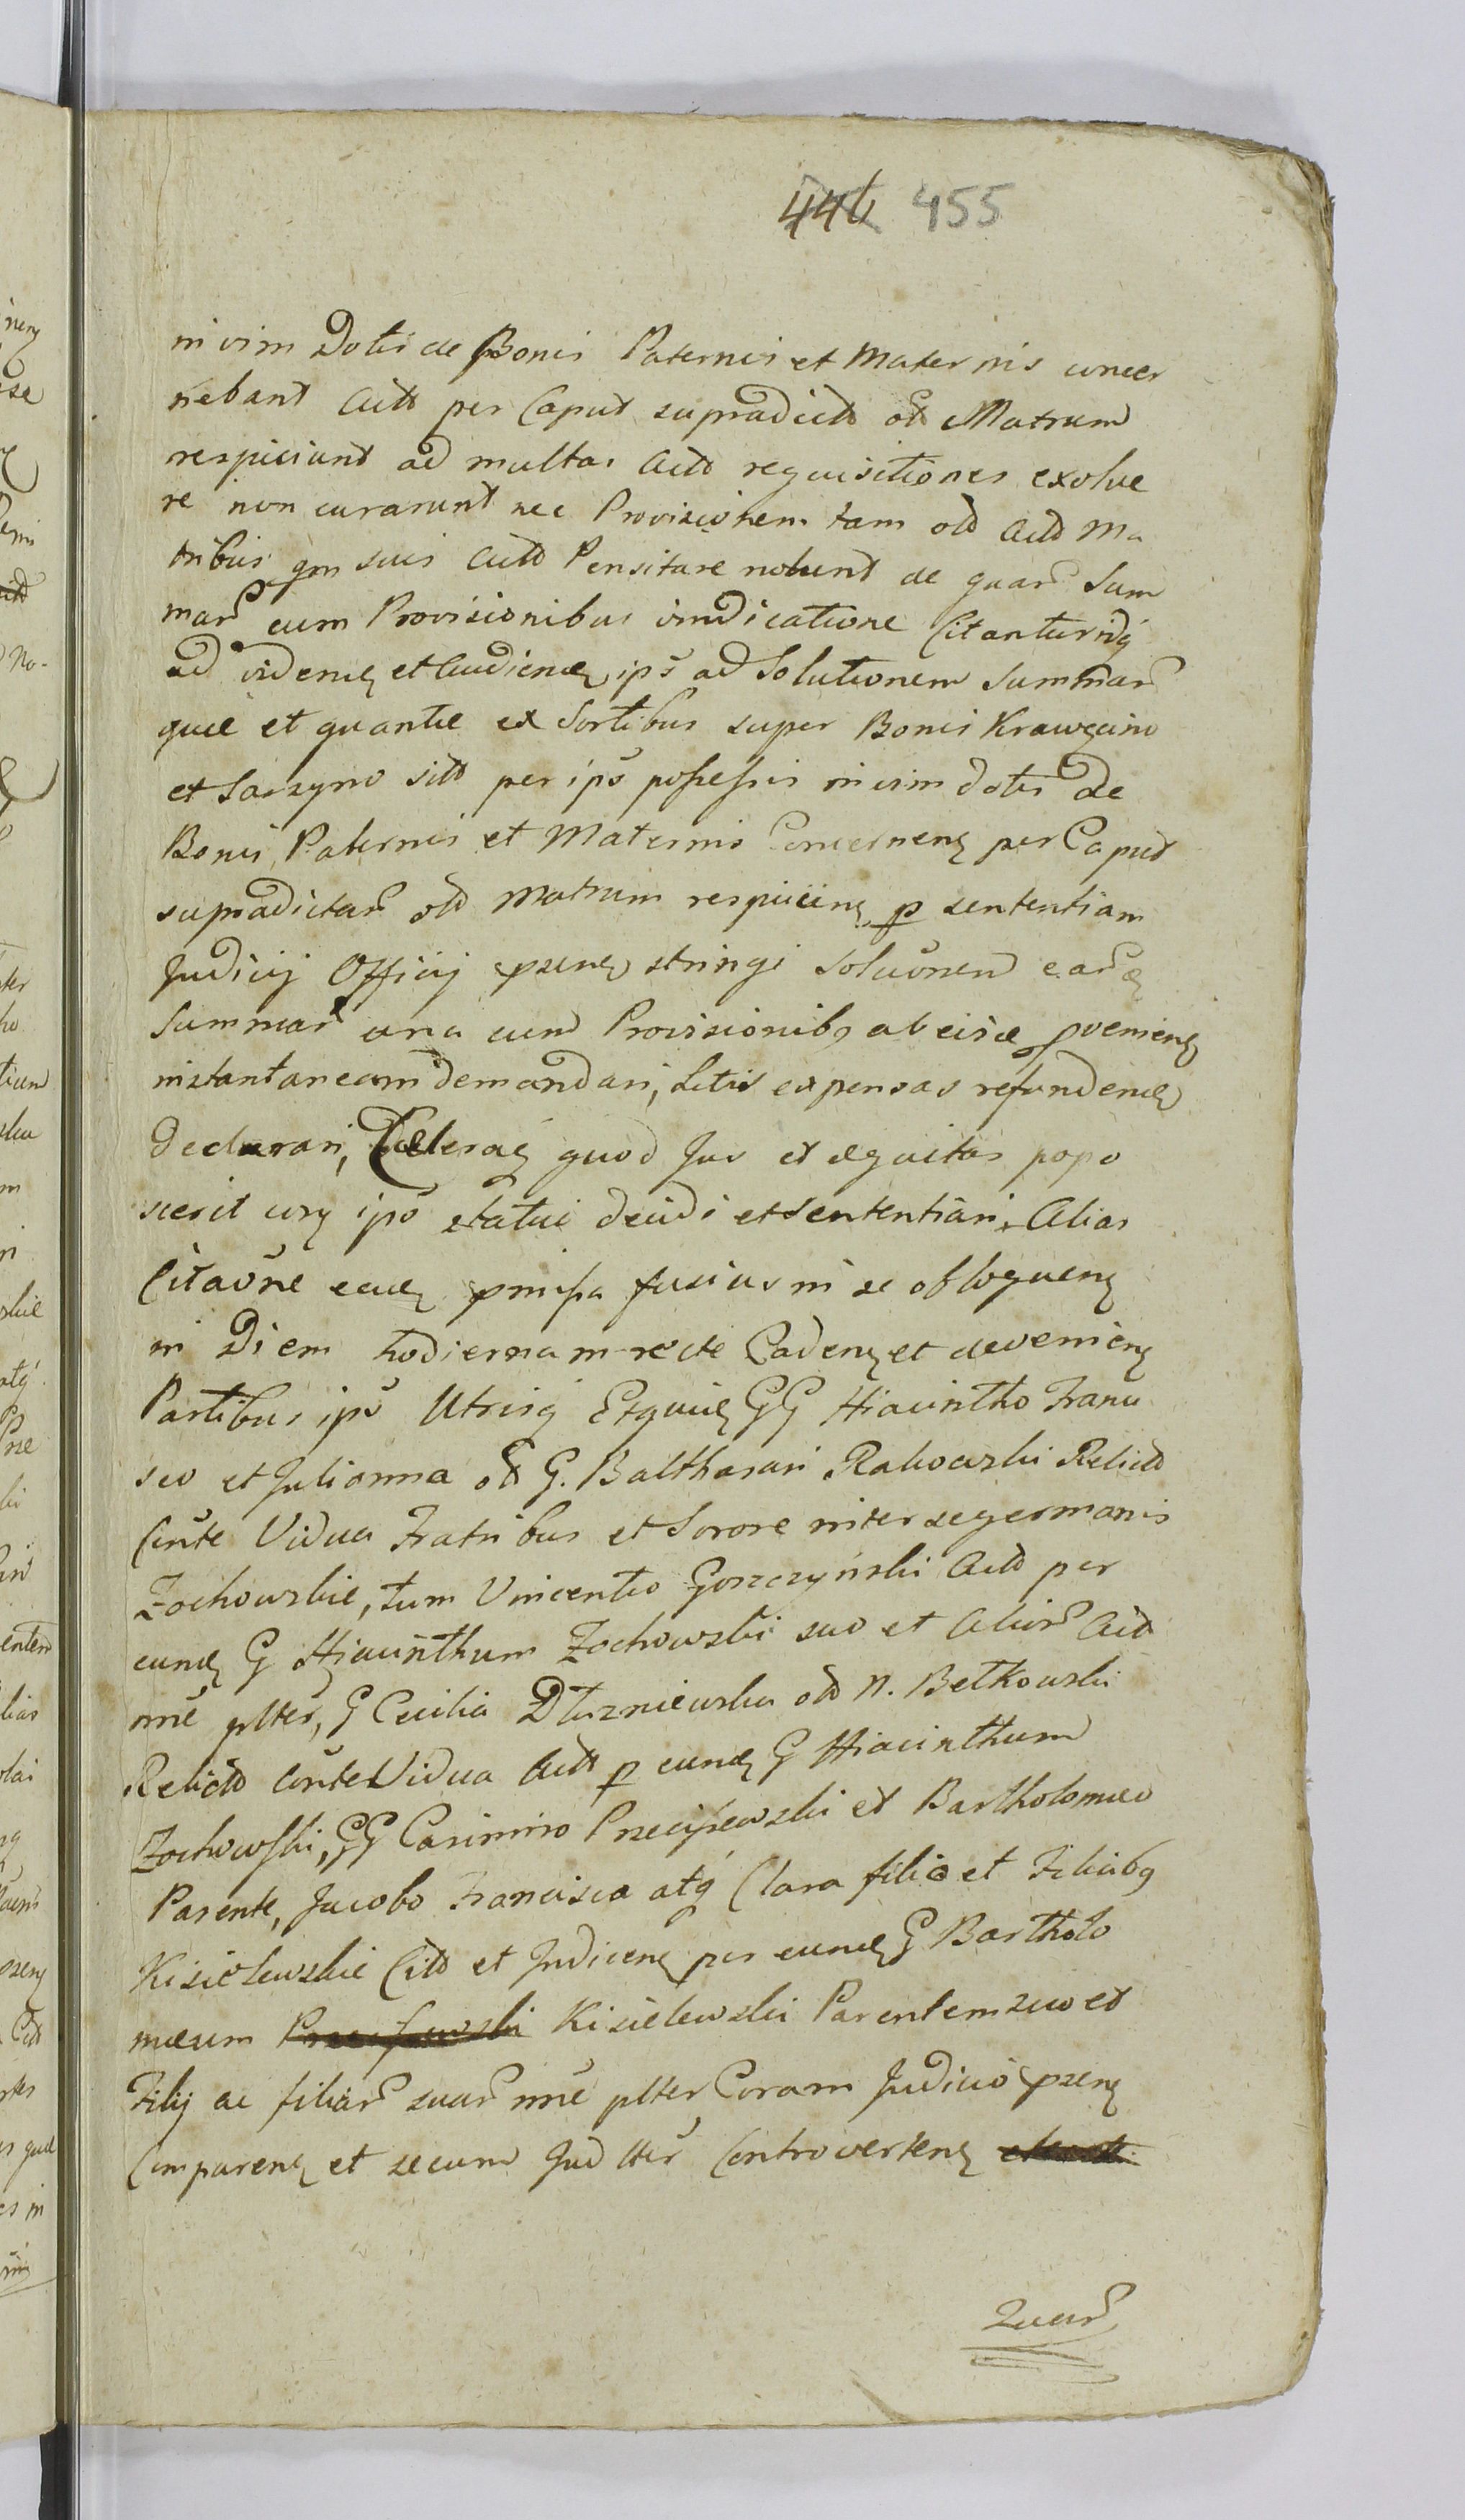 446 455
in vim Dotis de Bonis Paternis et Maternis concer
nebant Actt per Caput supradictt ott Matrum
respiciunt ad multas Actt requisitiones exolve
re non curarunt nec Provisionem tam ott Actt Ma
tribus qm suis Actt Pensitare nolunt de quar Sum
mar cum Provisionibus vindicatione Citanturidq
ad videnđ et Audienđ ips ad Solutionem Summar
quæ et quantæ ex Sortibus super Bonis Krawęcino
et Sarzyno sitt per ips possessis in vim dotis de
Bonis Paternis et Maternis Concernenę per Caput
supradictar ott Matrum respicienę p sententiam
Judicij Officij pzenę stringi Soluõnem earđ
Summar una cum Provisionibg ab eisđ pvenienę
instantaneam demandari, Litis expensas refundenđ
declarari, Cæteraq quod Jus et æquitas popo
scerit cirę ips statui decidi et sententiari. Alias
Citaõne eađ pmissa fusius in se obloquenę
in Diem hodiernam recte Cadenę et devenienę
Partibus ips Utrisq Exquiđ GG Hiacintho Franci
sco et Julianna ott G. Balthasari Rakowski Relictt
Conte Vidua Fratribus et Sorore inter se germanis
Zochowskie, tum Vincentio Goszczyński Actt per
eunđ G Hiacinthum Zochowski suo et Alior Actt
nnē plter, G Cecilia Dłuzniewska ott N. Betkowski
Relictt Conte Vidua Actt p eunđ G Hiacinthum
Zochowski, GG Casimiro Przeciszewski et Bartholomæo
Parente, Jacobo Francisca atq Clara filio et Filiabg
Kisielewskie Citt et Judicenę per eunđ G Bartholo
mæum Przeciszewski Kisielewski Parentem suo et
Filij ac filiar suar nnē plter Coram Judicio pzenę
Comparenę et secum Jud lter Controvertenę
Quar